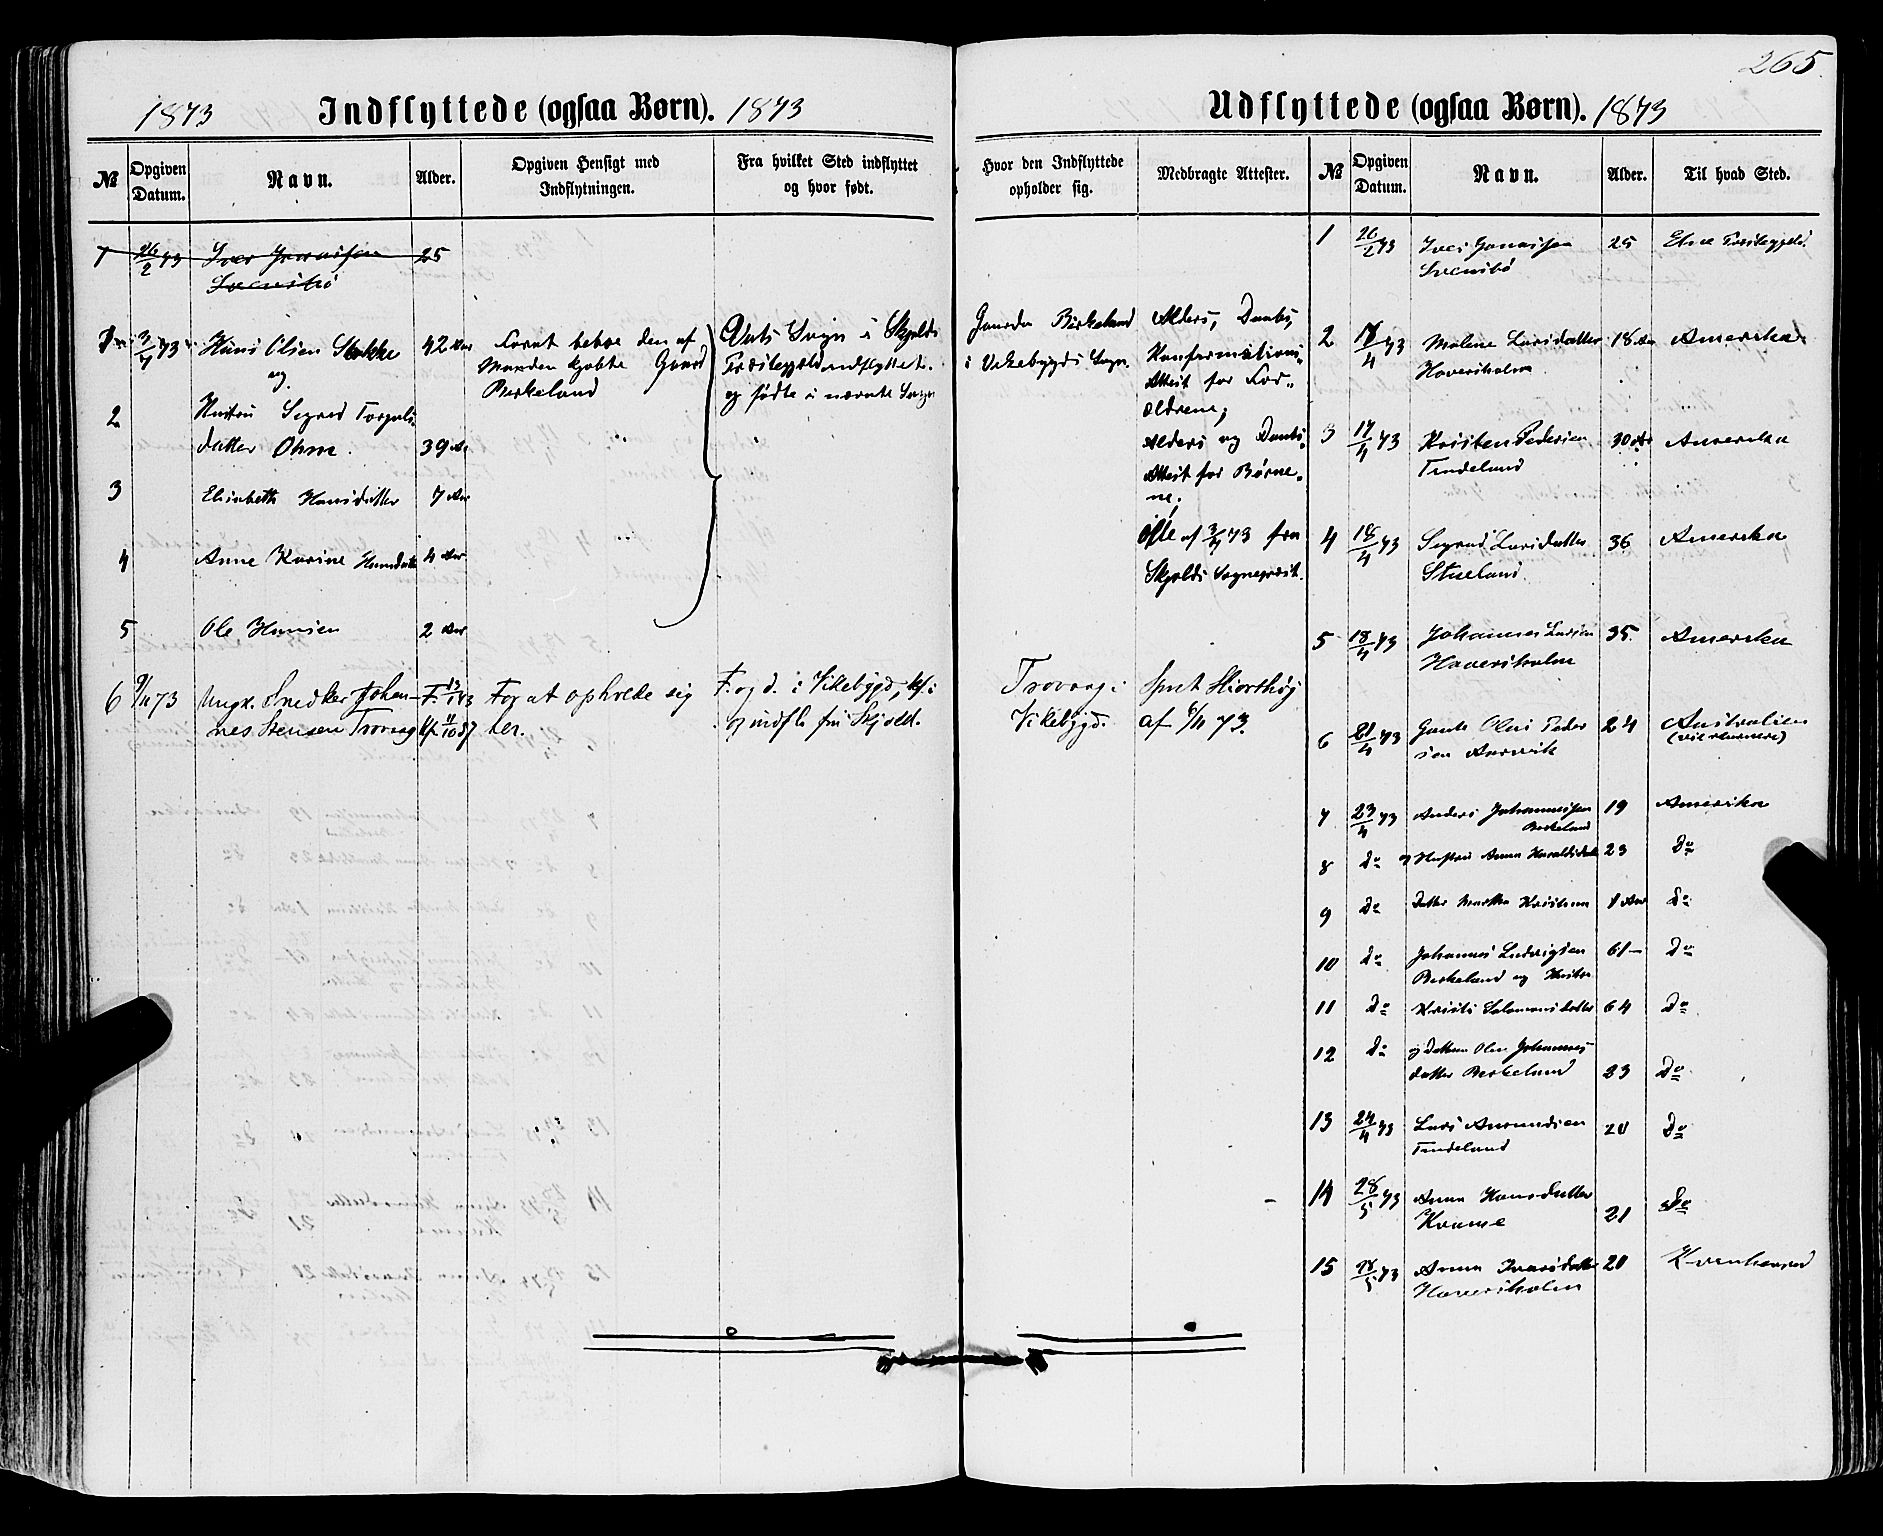 265.
1873 Indflyttede (ogsaa Børn). 1873
№ Opgiven Datum. Navn. Alder. Opgiven Hensigt med Indflytningen. Fra hvilket Sted indflyttet og hvor født.
1 26/2 73 25
Svensbø
3/4 73 Hans Olsen Stakke 42 Aar
og
2 Hustru Sigrid
datter Ohm. 39 Aar
3 Elisabeth Hansdatter 7 Aar
4 Anne Karine Hansdatter 4 Aar
5 Ole Hansen 2 Aar
for at beboe den af
Manden kjøbte Gaard
Birkeland
Vats Sogn i Skjolds
Præstegjeld indflyttet
og fødte i nævnte Sogn
6 9/11 73 Ungk. Snedker Johan-
nes Stensen Trovaag
For at opholde sig
her.
F. og d. i Vikebygd, kf. i
og indfl. fra Skjold.
Udflyttede (ogsaa Børn). 1873
Hvor den Indflyttede opholder sig. Medbragte Attester. № Opgiven Datum. Navn. Alder. Til hvad Sted.
Gaarden Birkeland
i Vikebygds Sogn.
Alders, Daabs,
Konfirmations-
Attest for For-
ældrene;
Alders og Daabs
Attest for Børne-
ne;
af 3/4 73 fra
Skjolds Sognepræst.
Trovaag i
Vikebygd.
Spr Hiorthøj
af 6/11 73.
1 26/2 73 25 Etne Præstegjeld
Svensbø
2 17/4 73 Malene Larsdatter 18 Aar Amerika
Haversholm
3 17/4 73 Kristen Pedersen 30 Aar Amerika
Tindeland
4 18/4 73 Sigrid Larsdatter 36 Amerika
Stueland
5 18/4 73 Johannes Larsen 35. Amerika
Haversholm
6 21/4 73 Olai Peder 24 Australien
sen Aarvik (vil returnere)
7 23/4 73 Anders Johannesen 19 Amerika
Birkeland
8 do Hustru Anna Haraldsdat 23 do
9 do Datter Martha Kristiana 1 Aar do
10 do Johannes Ludvigsen 61 — do
Birkeland og Hustru
11 do Kristi Salamonsdatter 64 do
12 do og Datter Johannes
datter Birkeland 23 do
13 24/4 73 Lars Aamundsen 20 do
Tindeland
14 28/5 73 Anna Hansdatter
Kvame 21 do
15 28/5 73 Anna Ivarsdatter 20
Haversholm